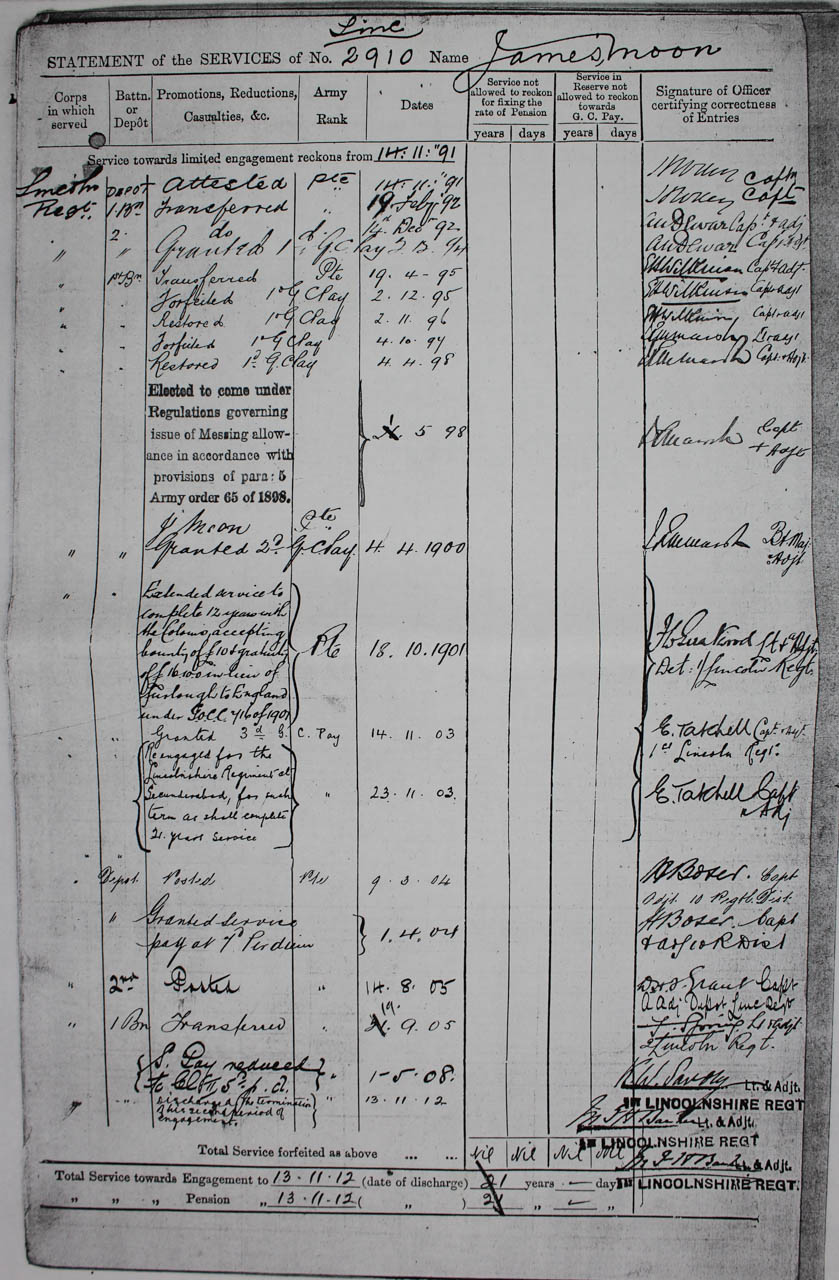 Linc
STATEMENT of the SERVICES of No. 2910 Name James Moon
Corps in which served
Battn. or Depôt
Promotions, Reductions, Casualties, &c.
Army Rank
Dates
Service not allowed to reckon for fixing the rate of Pension
years days
Service in Reserve not allowed to reckon towards G. C. Pay.
years days
Signature of Officer certifying correctness of Entries
Service towards limited engagement reckons from 14:11:"91
Lincoln DEPOT Attested Pte 14:11:"91 Capt
Regt. 1 Bn Transferred " 19 Feby 92 Capt
" 2. do 14 Decr 92 Capt & adj
" " Granted 1 G.C. Pay
" 1st Bn Transferred Pte 19. 4-95 Wilkinson Capt & adj.
" " Forfeited 1st G C Pay 2. 12. 95 Wilkinson Capt & adj
" " Restored 1st G C Pay 2. 11. 96 Wilkinson Capt & adj
" . Forfeited 1st G C Pay 4. 10. 97
" . Restored 1st G. C Pay 4. 4. 98 Capt & Adjt.
Elected to come under
Regulations governing
issue of Messing allow-
ance in accordance with 5 98 Capt & Adjt
provisions of para: 5
Army order 65 of 1898.
J Moon Pte
" " Granted 2d G. C Pay 4. 4. 1900 Bt Maj Adjt
" " Extended service to
complete 12 years with
the Colours, accepting
bounty of £10 & gratuity Pte 18. 10. 1901
of £16.10.0 in lieu of Det: 1/Lincoln Regt
Furlough to England
under 716 of 1901
" " Granted 3d G. C. Pay 14. 11. 03 E. Tatchell Capt & Adjt.
1st Lincoln Regt.
Re engaged for the
Lincolnshire Regiment at
Secunderabad, for such " 23. 11. 03. E. Tatchell Capt & Adj
term as shall complete
21. years service
" Depot. Posted Pte 9. 3. 04 Boxer. Capt
Adjt. 10 Regtl. Dist.
" Granted Service
pay at 7d Per diem 1. 4. 04 Boxer. Capt
" 2nd Posted " 14. 8. 05 Grant Capt
A Adj Depot Linc Regt
19.
" 1 Bn Transferred " 9. 05 Lt & Adjt
2 Lincoln Regt.
S. Pay reduced
to Cl II, 5d p. d. " 1-5-08. Lt. & Adjt.
1st LINCOLNSHIRE REGT
" " Discharged (the termination 13. 11. 12
of his second period of
engagement. Lt. & Adjt.
1st LINCOLNSHIRE REGT
Total Service forfeited as above ... ... Nil Nil Nil Nil
Lt. & Adjt.
Total Service towards Engagement to 13-11-12 (date of discharge) 21 years — days
1st LINCOLNSHIRE REGT.
" " " Pension " 13-11-12 ( " ) 21 " — "